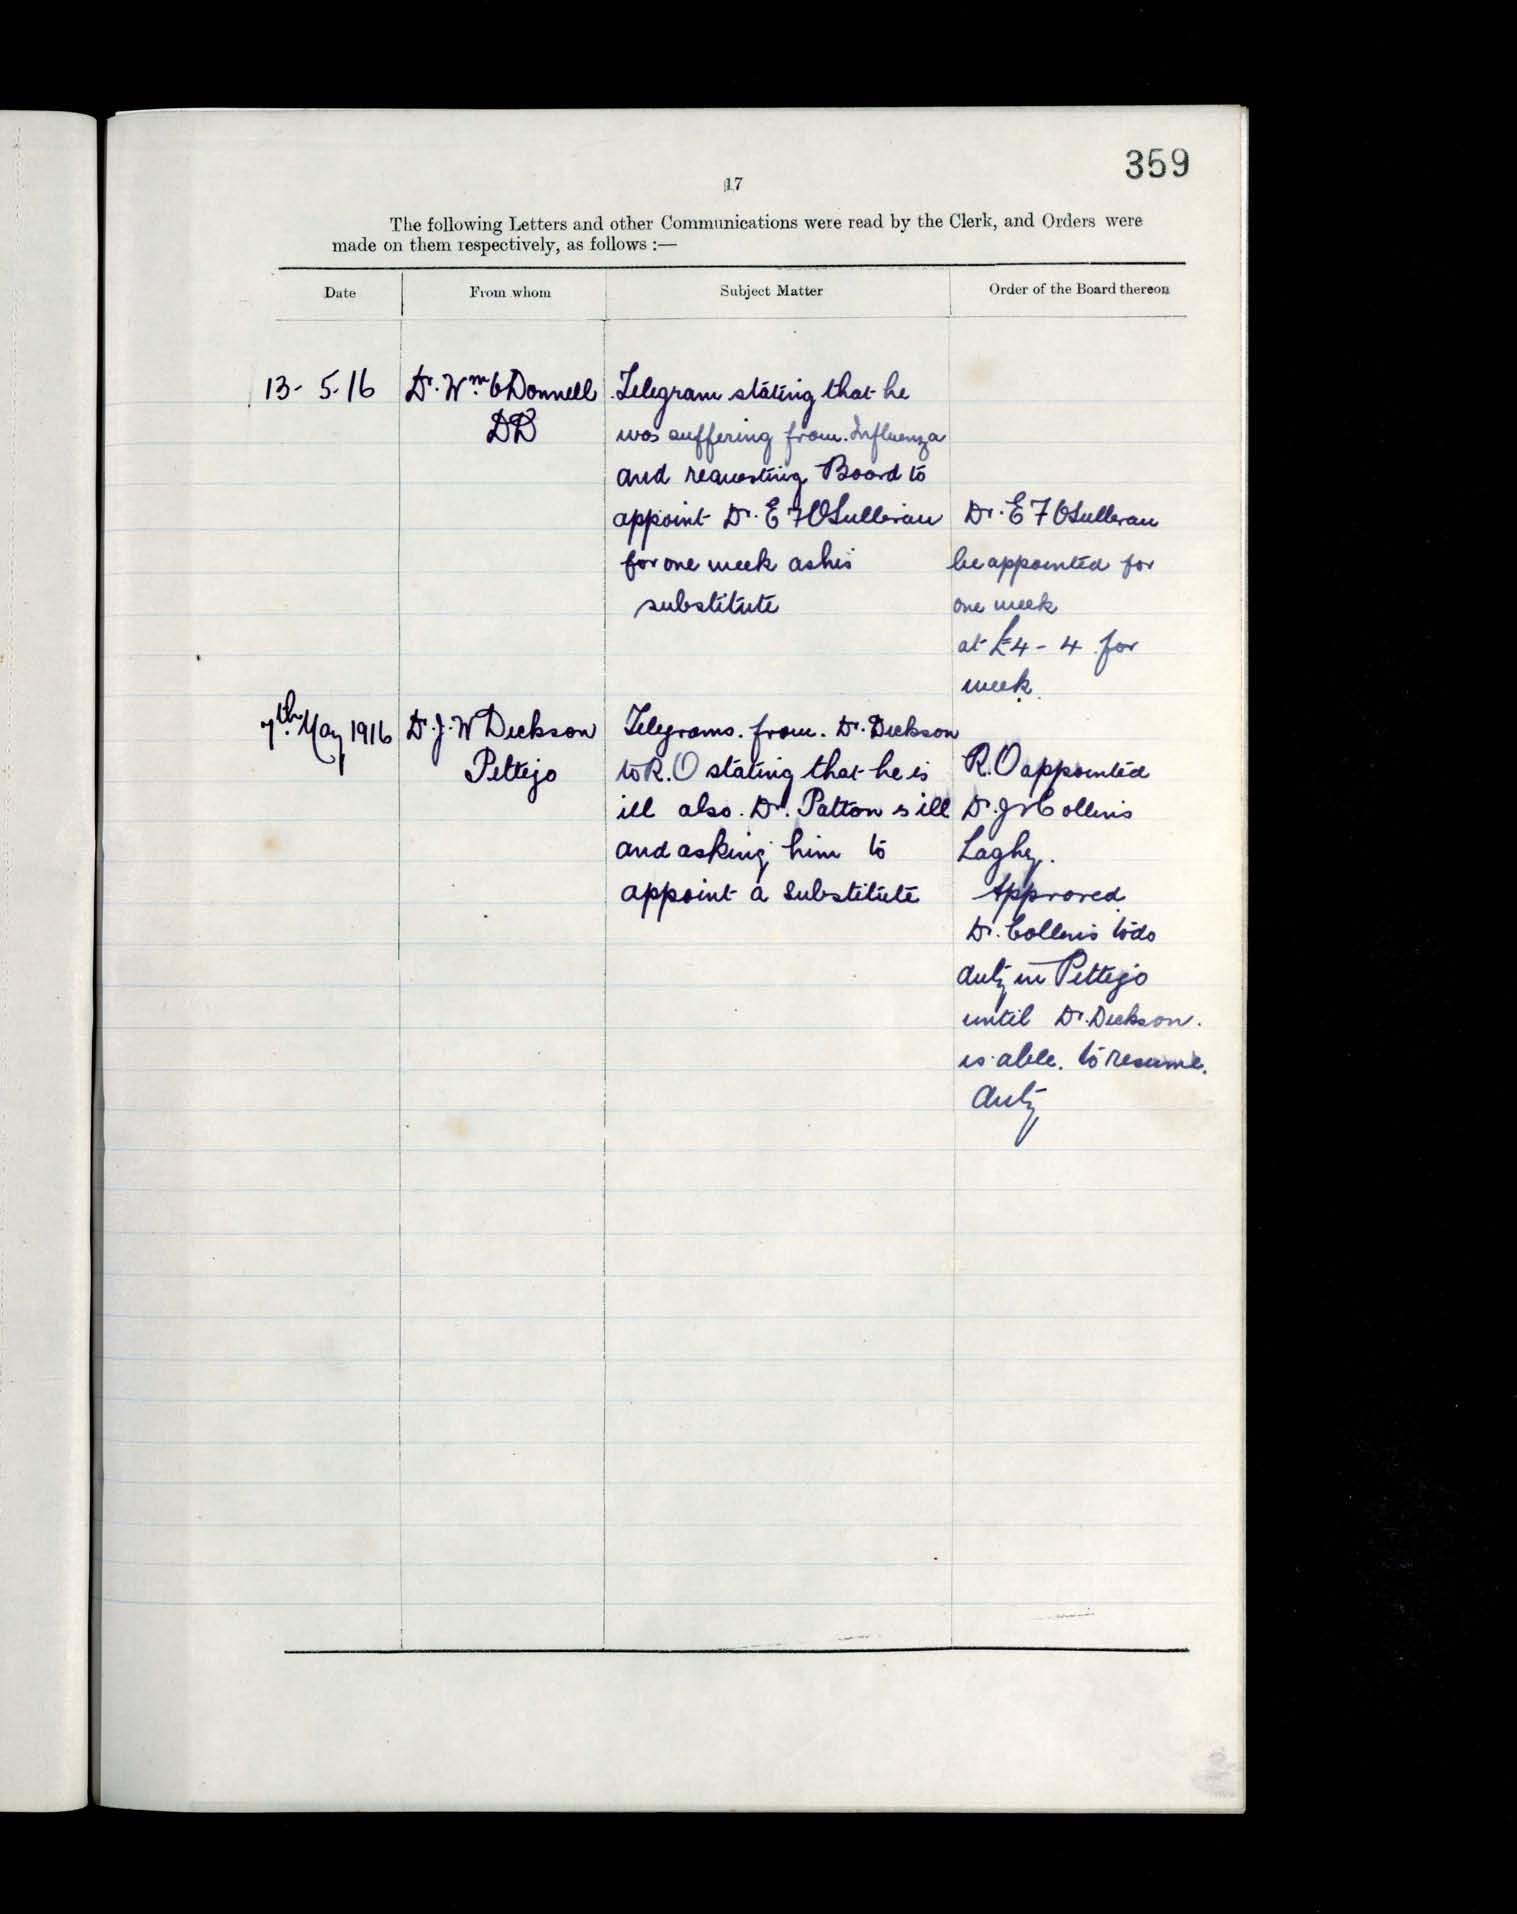 359
17
The following Letters and other Communications were read by the Clerk, and Orders were
made on them respectively, as follows :—
Date
From whom
Subject Matter
Order of the Board thereon
13- 5-16
Dr. Wm. O'Donnell
DD
Telegram stating that he
was suffering from Influenza
and requesting Board to
appoint Dr. E F O'Sullivan
for one week as his
substitute
Dr. E F O'Sullivan
be appointed for
one week
at £4-4 for
week.
7th. May 1916
Dr. J. W Dickson
Pettigo
Telegrams. from. Dr. Dickson
to R.O stating that he is
ill also. Dr. Patton is ill
and asking him to
appoint a Substitute
R.O appointed
Dr. Collins
Laghy.
Approved
Dr. Collins to do
duty in Pettigo
until Dr. Dickson.
is able. to resume.
duty